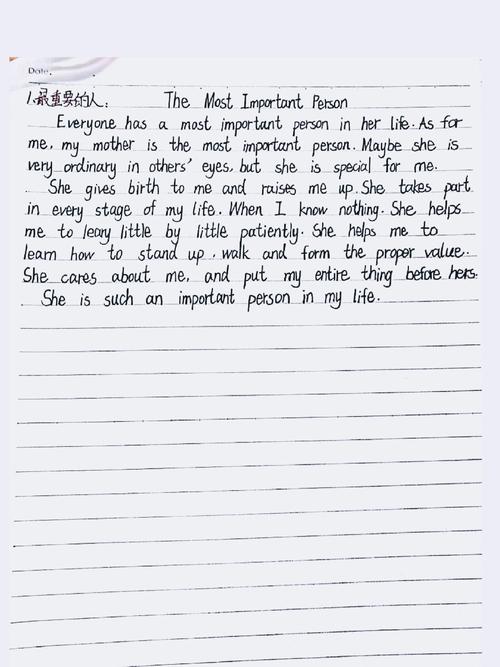 Date.
1.最重要的人: The Most Important Person
Everyone has a most important person in her life. As for
me, my mother is the most important person. Maybe she is
very ordinary in others' eyes, but she is special for me.
She gives birth to me and raises me up. She takes part
in every stage of my life. When I know nothing. She helps
me to leary little by little patiently. She helps me to
learn how to stand up, walk and form the proper value.
She cares about me, and put my entire thing before hers.
She is such an important person in my life.